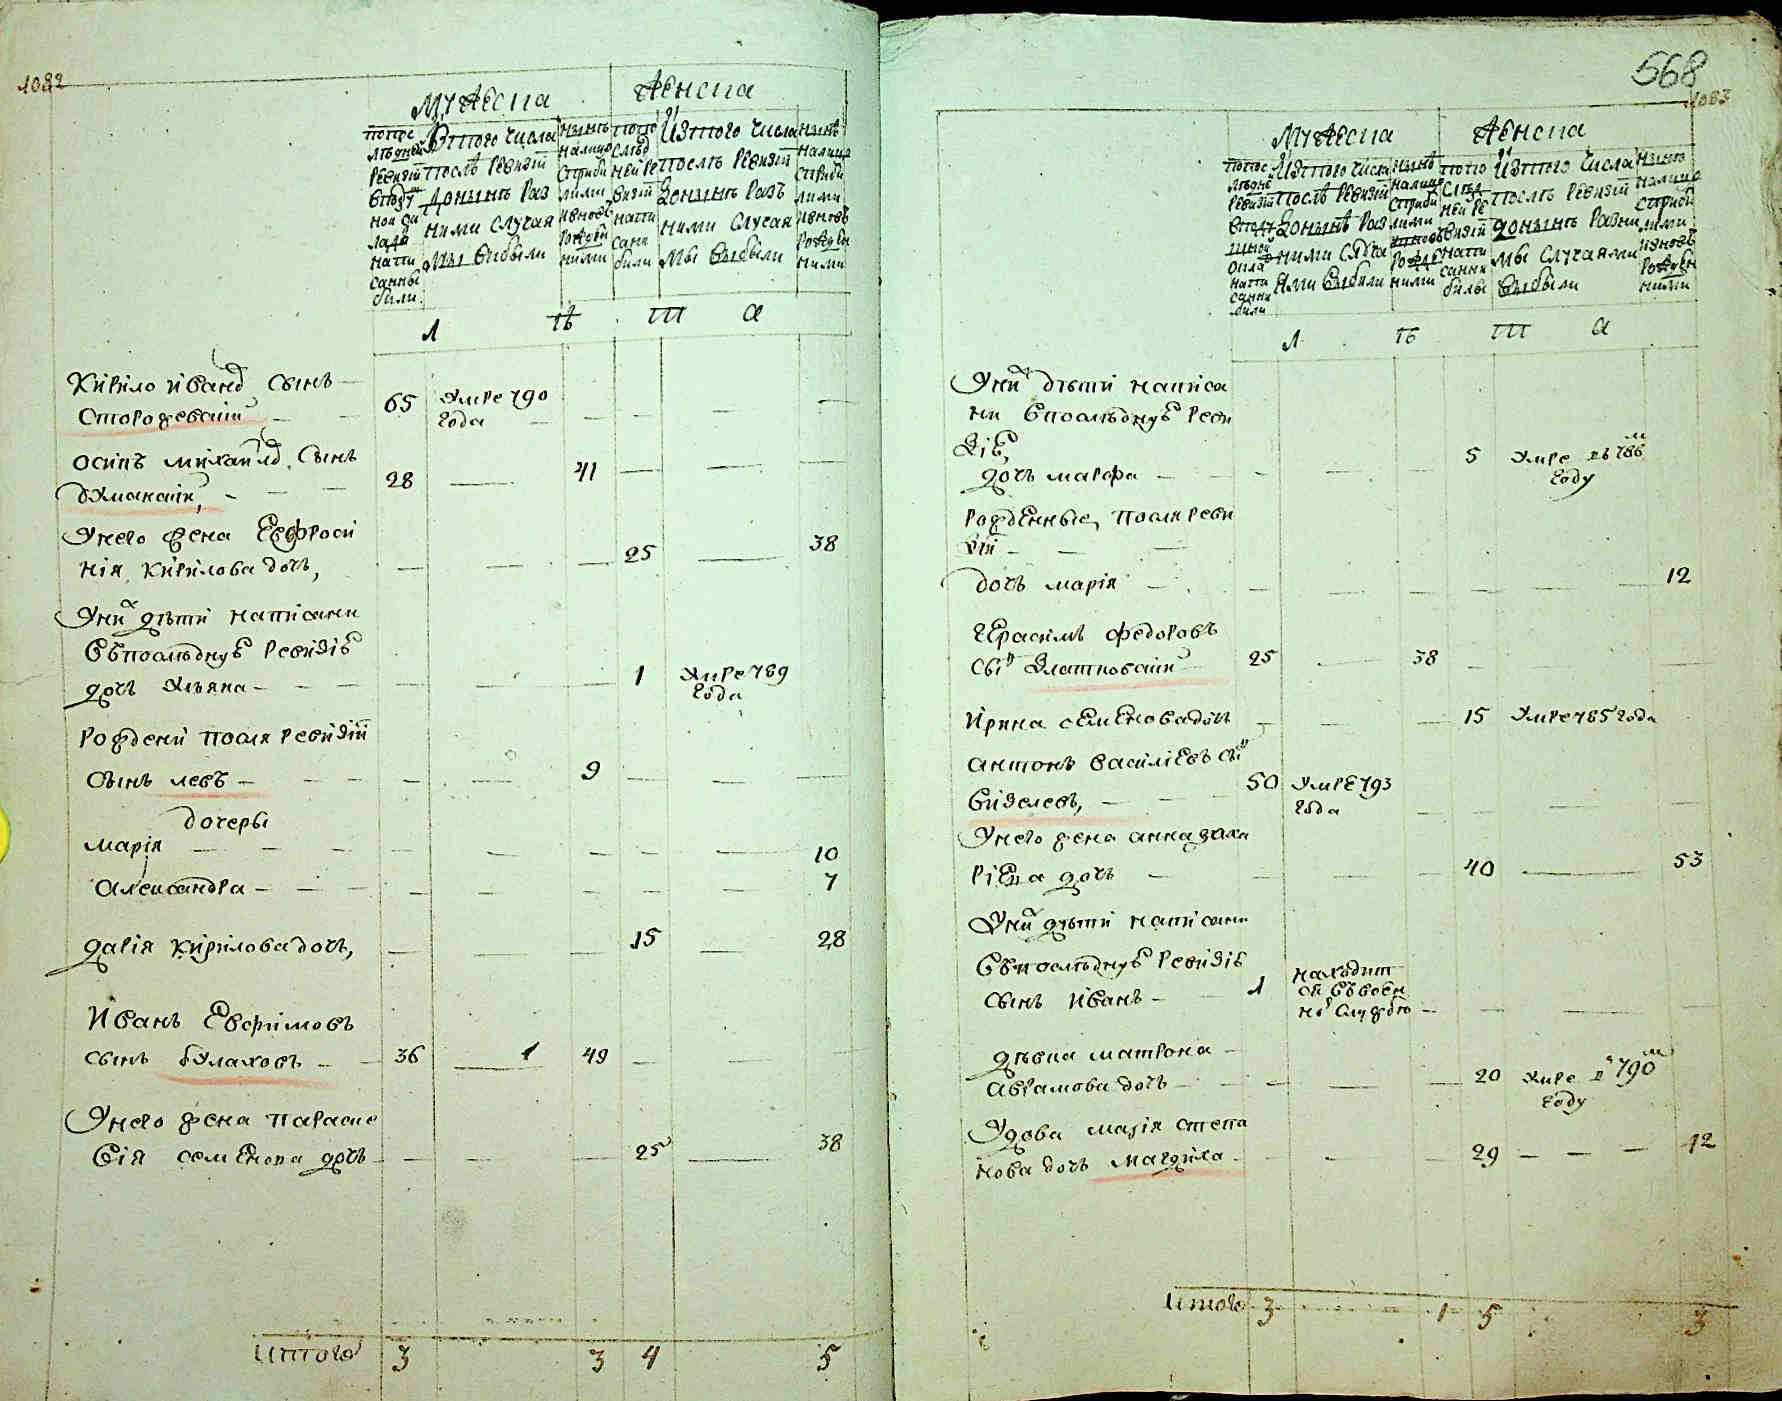 1082
Мужеска Женска
по последней ревизии в подушной оклад написаны были
Из того числа после ревизии до ныне разными случаями выбыли
Ныне на лицо с прибылыми и вновь рожденными
По последней ревизии написаны были
Из того числа после ревизии до ныне разными случаями выбыли
Ныне на лицо с прибылыми и вновь рожденными
Л Ѣ Т А
Кирило Иванов сынъ
Сторожевашй 65 Умре 790
года
осипъ михайлов сынъ
28 41
Унего жена Евфроси
нія Кирилова дочь, 25 38
Уних дѣти написани
Въпослѣднуѣ ревизіѣ
дочь Ульяна 1 Умре 789
года
Рождени после ревизіи
сынъ левъ 9
дочеры
марія 10
Александра 7
дарія Кирилова дочь, 15 28
Иванъ Евфимовъ
сынъ булаховъ 36 1 49
Унего жена Параске
вія семенова дочь 25 38
Итого 3 3 4 5
568
1083
Мужеска Женска
по последней ревизии в подушной оклад написаны были
Из того числа после ревизии до ныне разными случаями выбыли
Ныне на лицо с прибылыми и вновь рожденными
По последней ревизии написаны были
Из того числа после ревизии до ныне разными случаями выбыли
Ныне на лицо с прибылыми и вновь рожденными
Л Ѣ Т А
Уних дѣти написа
ни Впослѣднуѣ реви
зіѣ,
дочь марфа 5 Умре въ 786м
году
рожденные, после реви
зіи
дочь марія 12
Герасимъ федоровъ
сын Златковашй 25 38
Ирина семенова дочь 15 Умре 785 года
антонъ василіевъ сын
Визелевъ, 50 Умре 793
года
Унего жена анна заха
ріева дочь 40 53
Уних дѣти написани
Въпослѣднуѣ ревизіѣ
сынъ Иванъ 1 находит
ся въвоен
ной службѣ
дѣвка матрона
аврамова дочь 20 Умре в 790м
году
Удова марія степа
нова дочь магдича 29 42
Итого 3 1 5 3